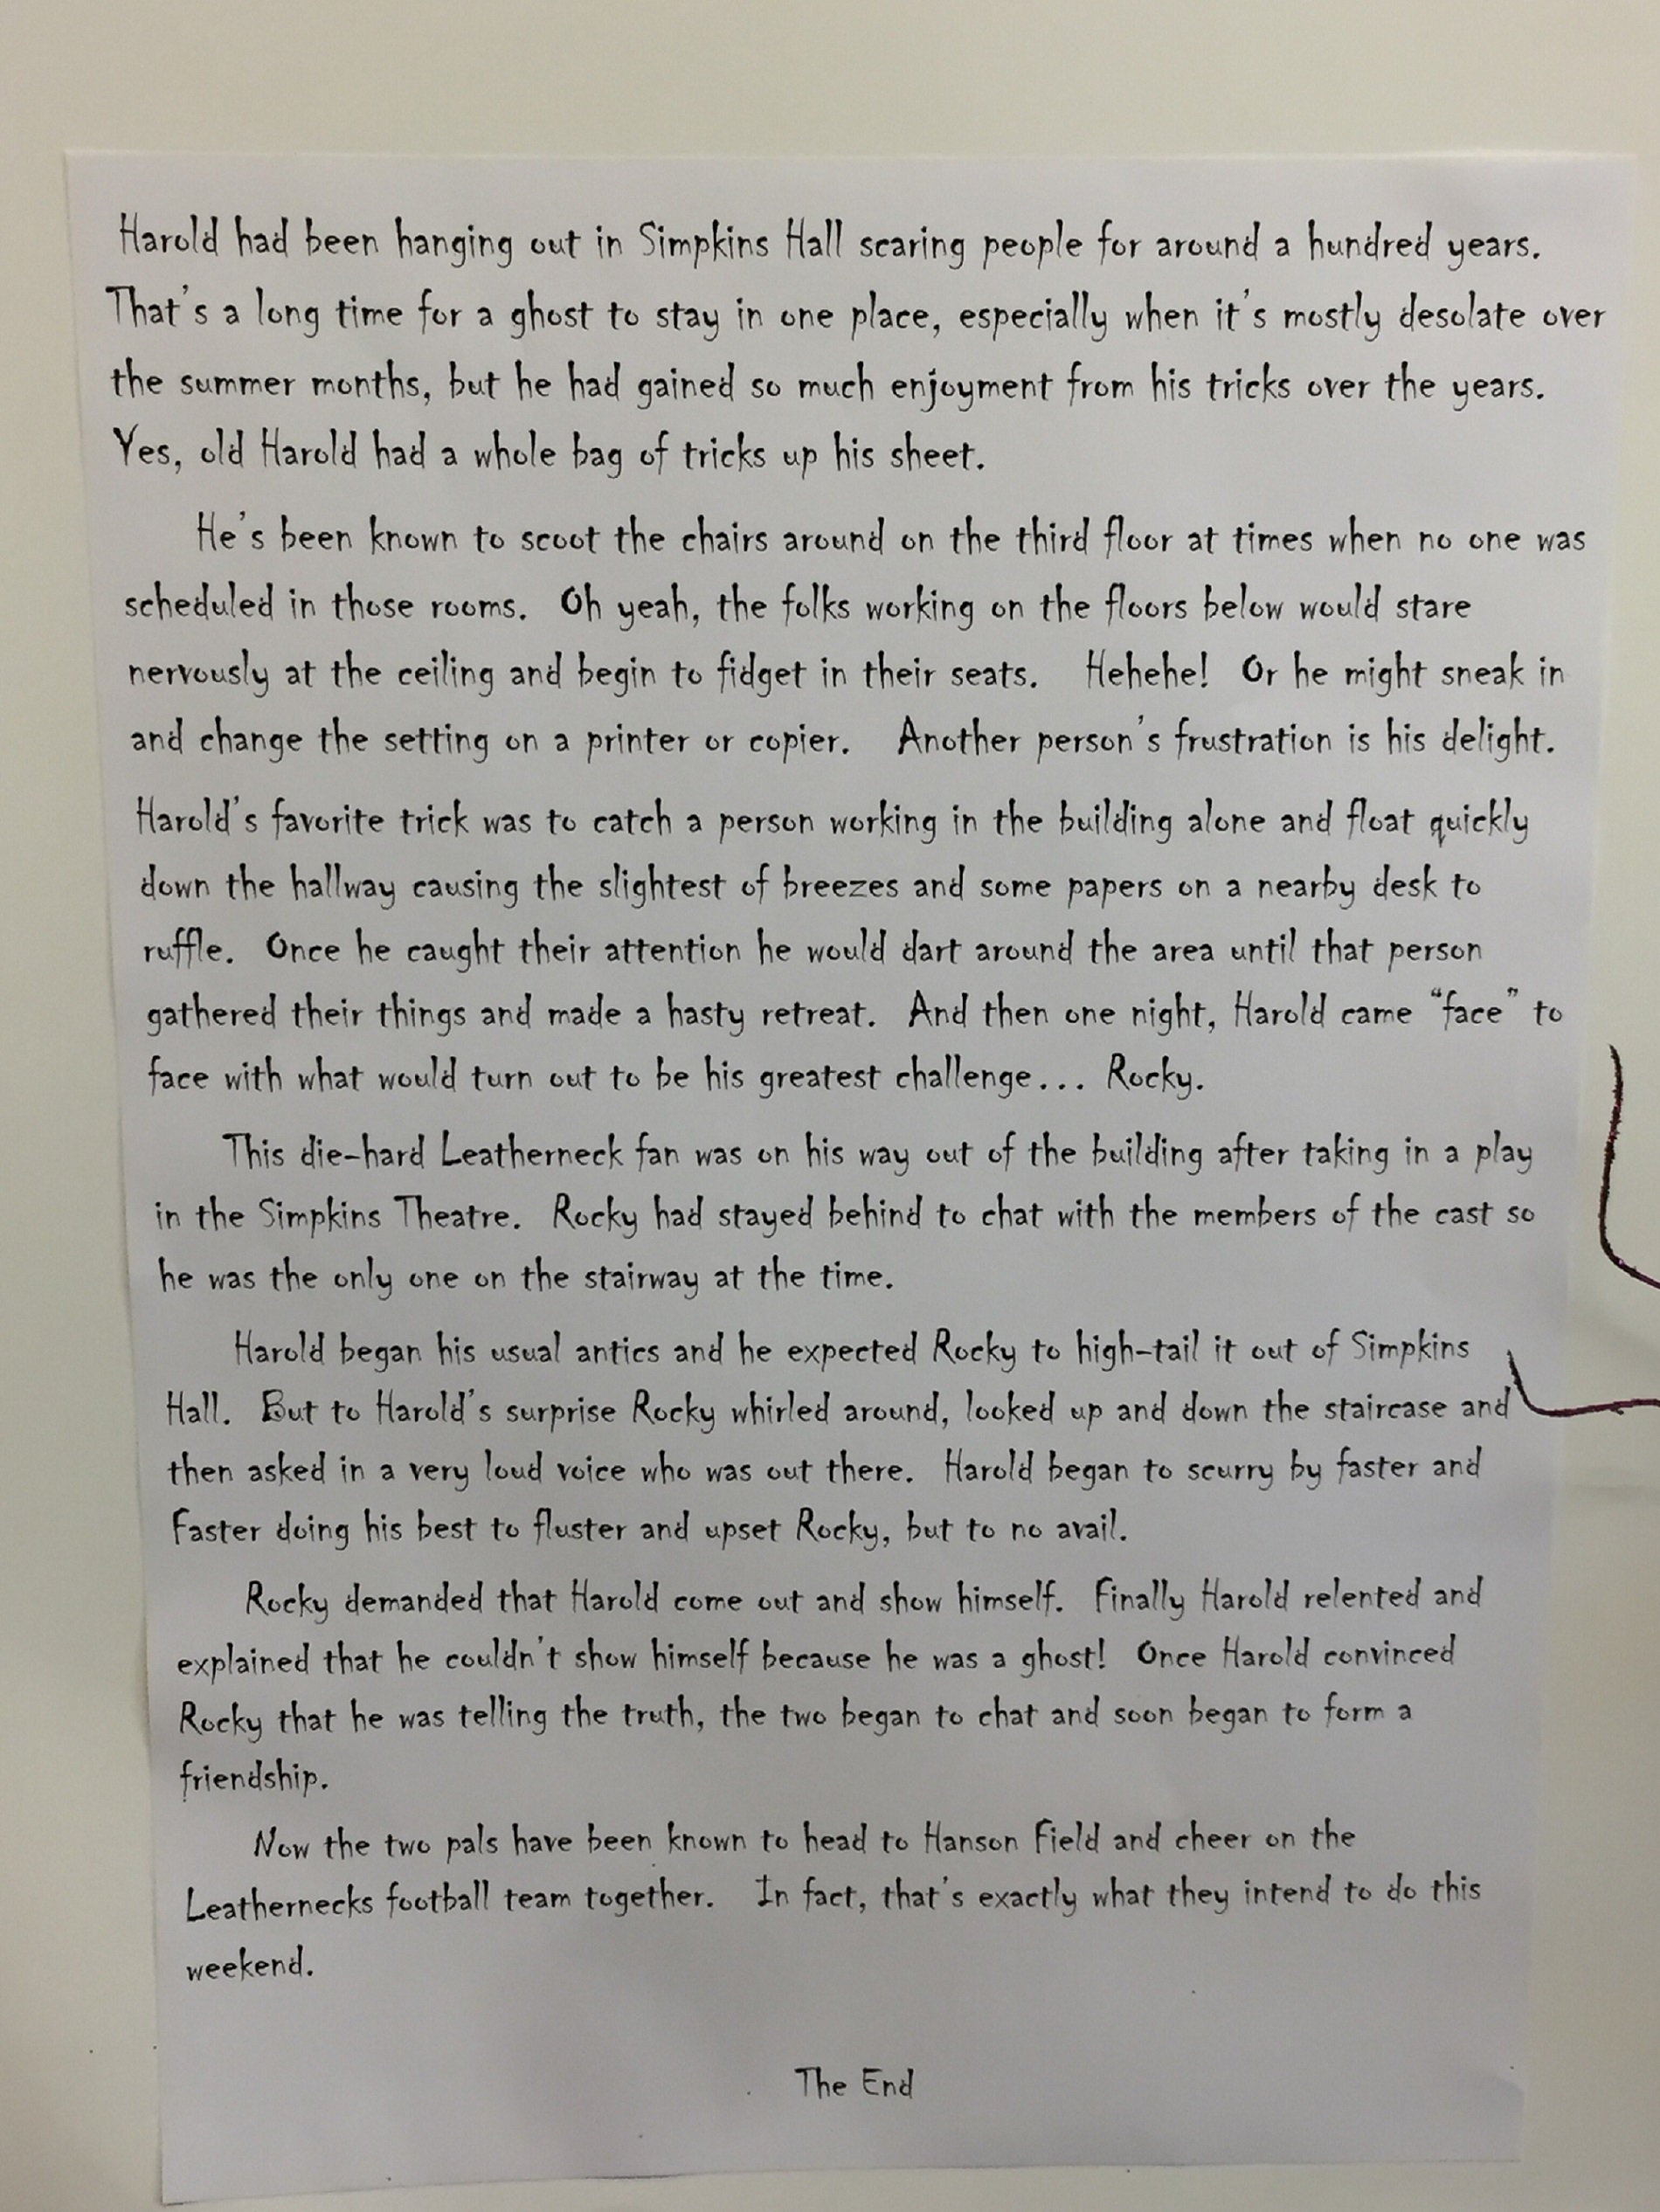 Harold had been hanging out in Simpkins Hall scaring people for around a hundred years.
That's a long time for a ghost to stay in one place, especially when it's mostly desolate over
the summer months, but he had gained so much enjoyment from his tricks over the years.
Yes, old Harold had a whole bag of tricks up his sheet.
He's been known to scoot the chairs around on the third floor at times when no one was
scheduled in those rooms. Oh yeah, the folks working on the floors below would stare
nervously at the ceiling and begin to fidget in their seats. Hehehe! Or he might sneak in
and change the setting on a printer or copier. Another person's frustration is his delight.
Harold's favorite trick was to catch a person working in the building alone and float quickly
down the hallway causing the slightest of breezes and some papers on a nearby desk to
ruffle. Once he caught their attention he would dart around the area until that person
gathered their things and made a hasty retreat. And then one night, Harold came "face" to
face with what would turn out to be his greatest challenge... Rocky.
This die-hard Leatherneck fan was on his way out of the building after taking in a play
in the Simpkins Theatre. Rocky had stayed behind to chat with the members of the cast so
he was the only one on the stairway at the time.
Harold began his usual antics and he expected Rocky to high-tail it out of Simpkins
Hall. But to Harold's surprise Rocky whirled around, looked up and down the staircase and
then asked in a very loud voice who was out there. Harold began to scurry by faster and
Faster doing his best to fluster and upset Rocky, but to no avail.
Rocky demanded that Harold come out and show himself. Finally Harold relented and
explained that he couldn't show himself because he was a ghost! Once Harold convinced
Rocky that he was telling the truth, the two began to chat and soon began to form a
friendship.
Now the two pals have been known to head to Hanson Field and cheer on the
Leathernecks football team together. In fact, that's exactly what they intend to do this
weekend.
The End